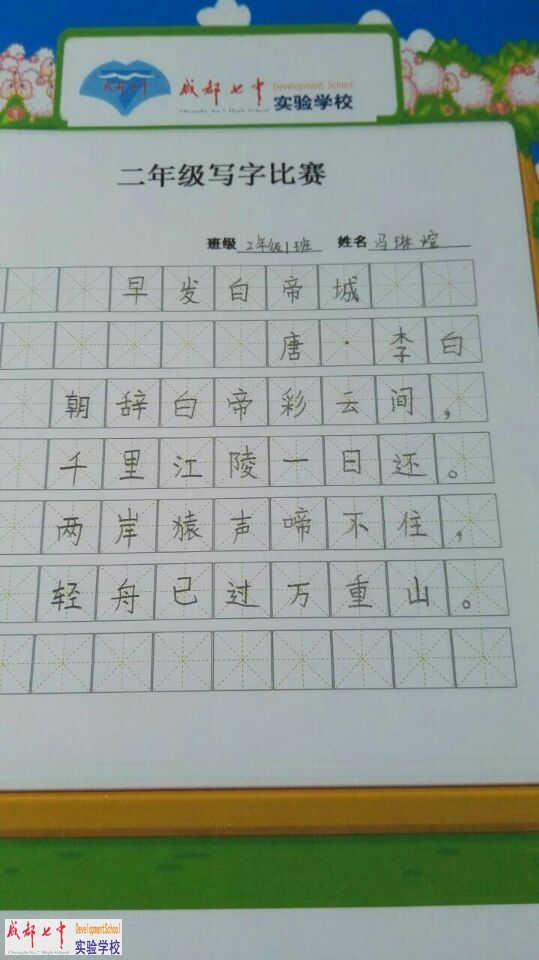 成都七中 成都七中 Development School
Chengdu No.7 High School 实验学校
二年级写字比赛
班级 2年级1班 姓名 冯琳煊
早发白帝城
唐·李白
朝辞白帝彩云间，
千里江陵一日还。
两岸猿声啼不住，
轻舟已过万重山。
成都七中 DevelopmentSchool
Chengdu No.7 High School 实验学校